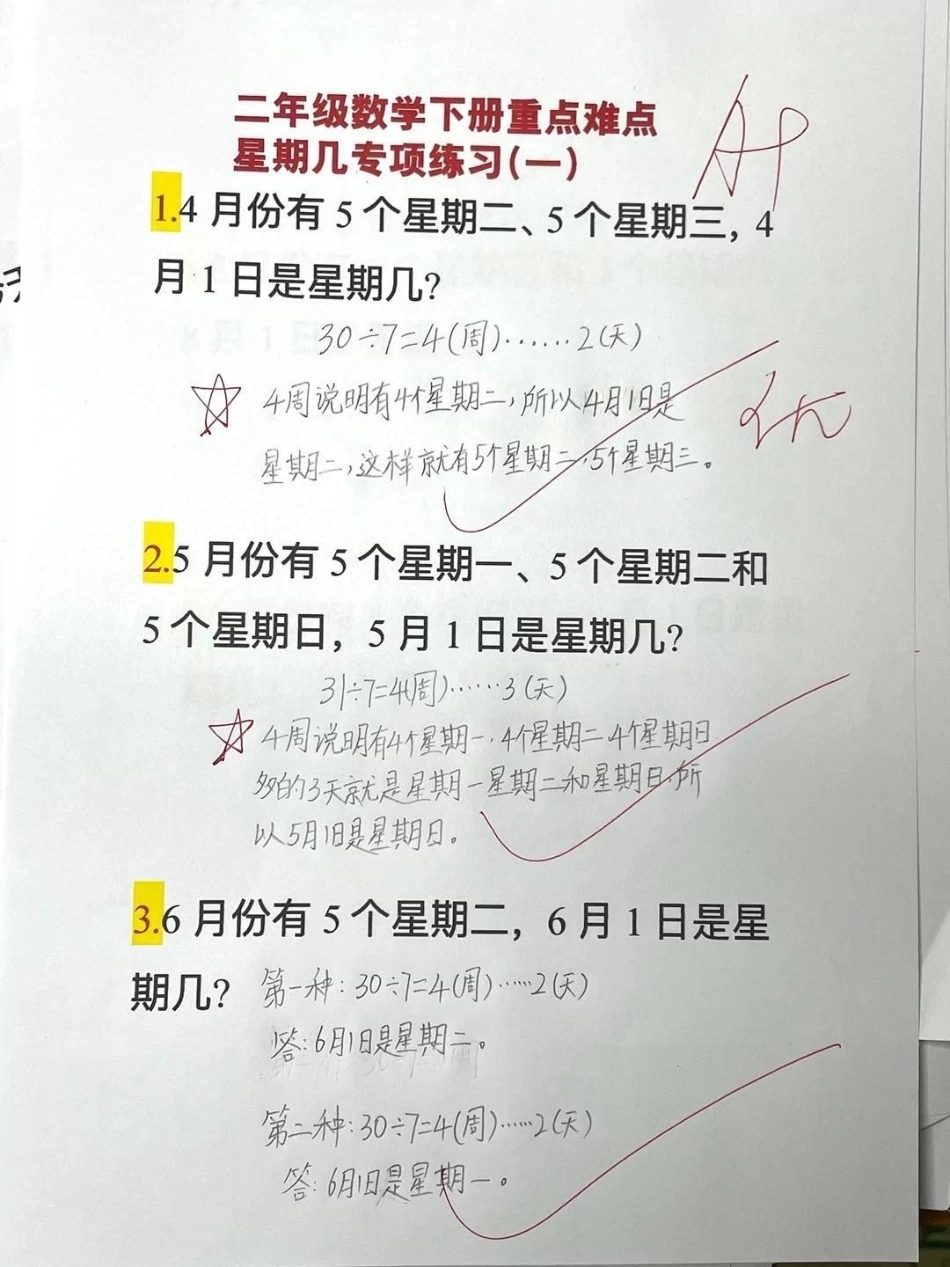 二年级数学下册重点难点
星期几专项练习(一)
1.4月份有5个星期二、5个星期三，4
月1日是星期几?
30÷7=4(周)……2(天)
4周说明有4个星期二，所以4月1日是
星期二，这样就有5个星期二，5个星期三。
优
2.5月份有5个星期一、5个星期二和
5个星期日，5月1日是星期几?
31÷7=4(周)……3(天)
4周说明有4个星期一，4个星期二 4个星期日
多的3天就是星期一星期二和星期日，所
以5月1日是星期日。
3.6月份有5个星期二，6月1日是星
期几?
第一种：30÷7=4(周)……2(天)
答：6月1日是星期二。
第二种：30÷7=4(周)……2(天)
答：6月1日是星期一。